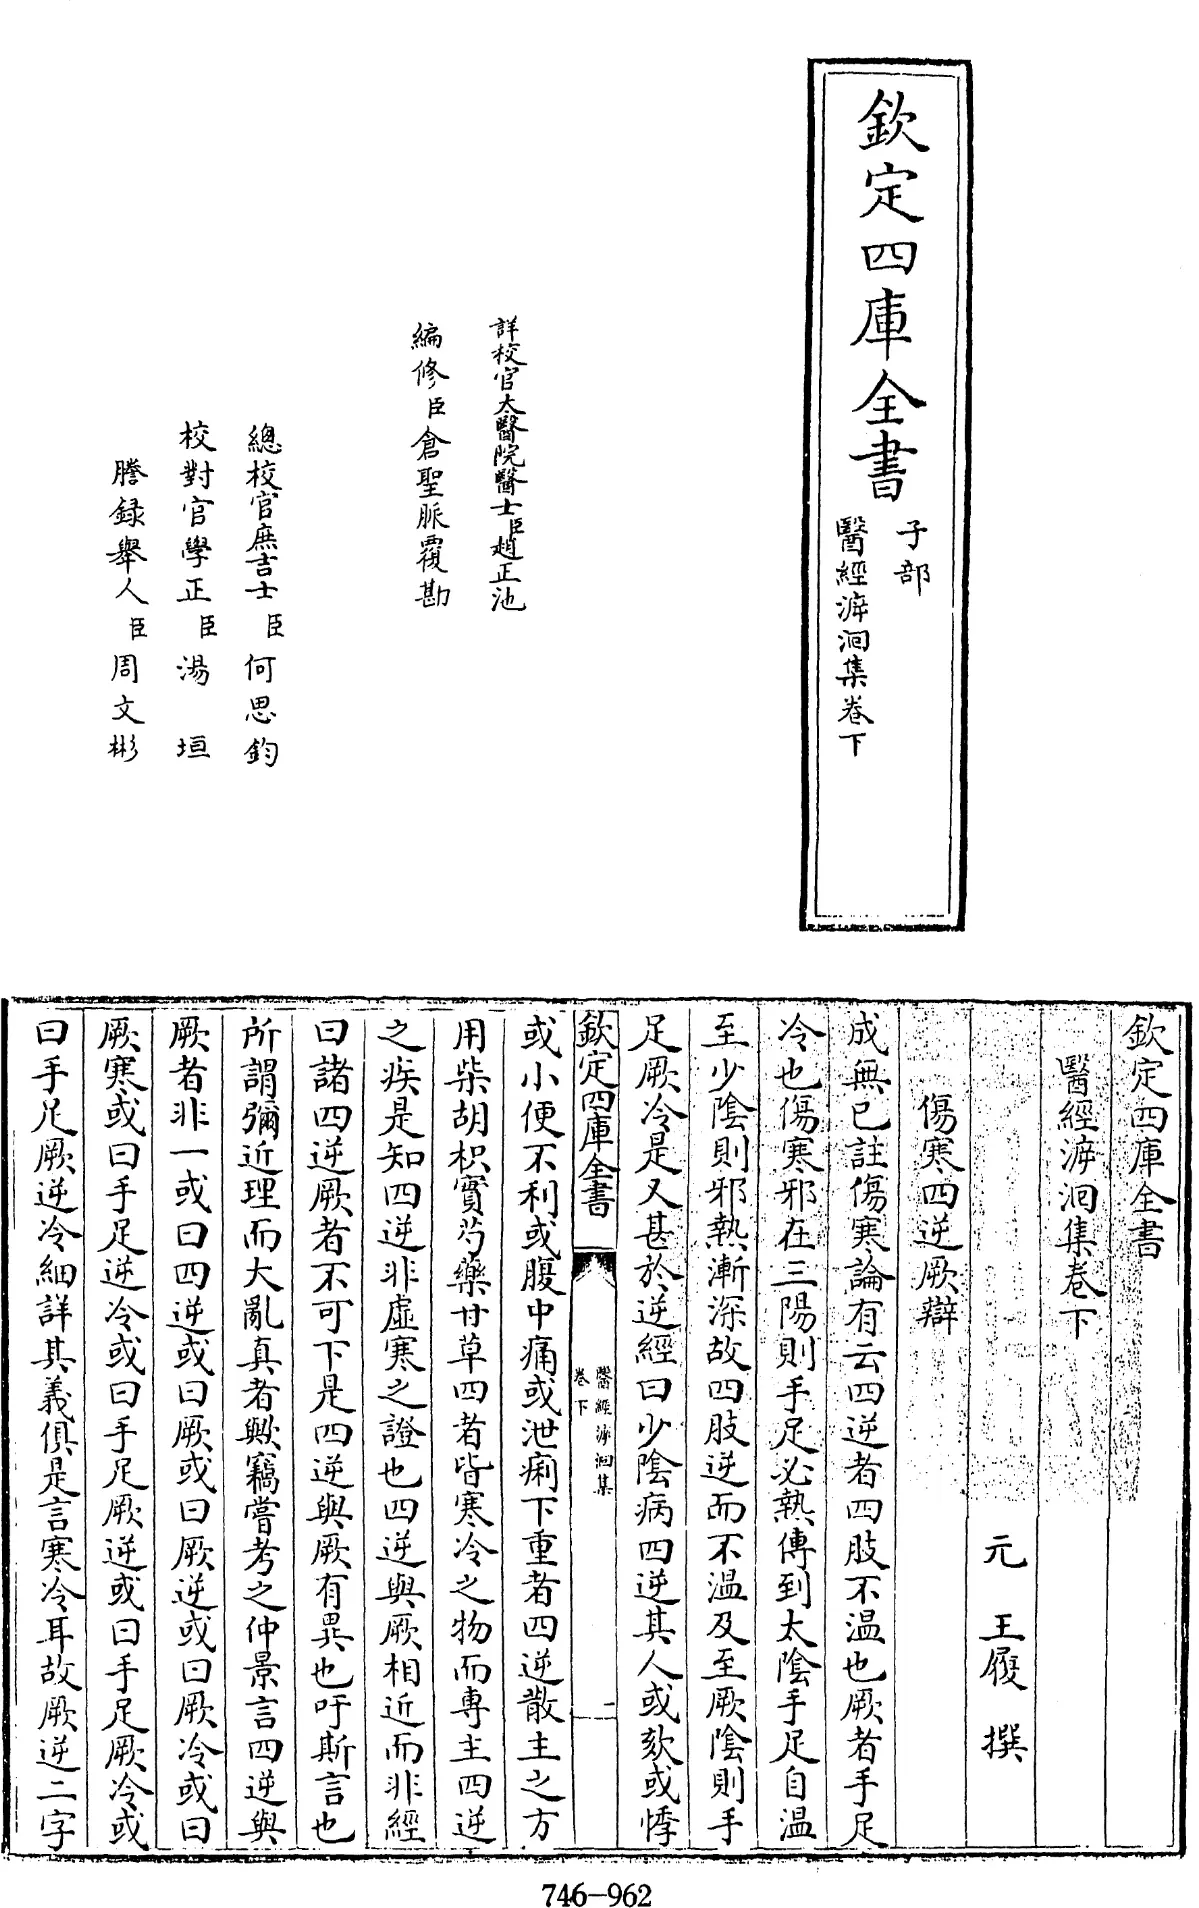 欽定四庫全書
子部
醫經溯洄集卷下
詳校官太醫院醫士臣趙正池
編修臣倉聖脈覆勘
總校官庶吉士臣何思鈞
校對官學正臣湯垣
謄録舉人臣周文彬
欽定四庫全書
醫經溯洄集卷下
元 王履 撰
傷寒四逆厥辯
成無已註傷寒論有云四逆者四肢不温也厥者手足
冷也傷寒邪在三陽則手足必熱傳到太陰手足自温
至少陰則邪熱漸深故四肢逆而不温及至厥陰則手
足厥冷是又甚於逆經曰少陰病四逆其人或欬或悸
欽定四庫全書
醫經溯洄集
卷下
一
或小便不利或腹中痛或泄痢下重者四逆散主之方
用柴胡枳實芍藥甘草四者皆寒冷之物而專主四逆
之疾是知四逆非虛寒之證也四逆與厥相近而非經
曰諸四逆厥者不可下是四逆與厥有異也吁斯言也
所謂彌近理而大亂真者歟竊嘗考之仲景言四逆與
厥者非一或曰四逆或曰厥或曰厥逆或曰厥冷或曰
厥寒或曰手足逆冷或曰手足厥逆或曰手足厥冷或
曰手足厥逆冷細詳其義俱是言寒冷耳故厥逆二字
746-962